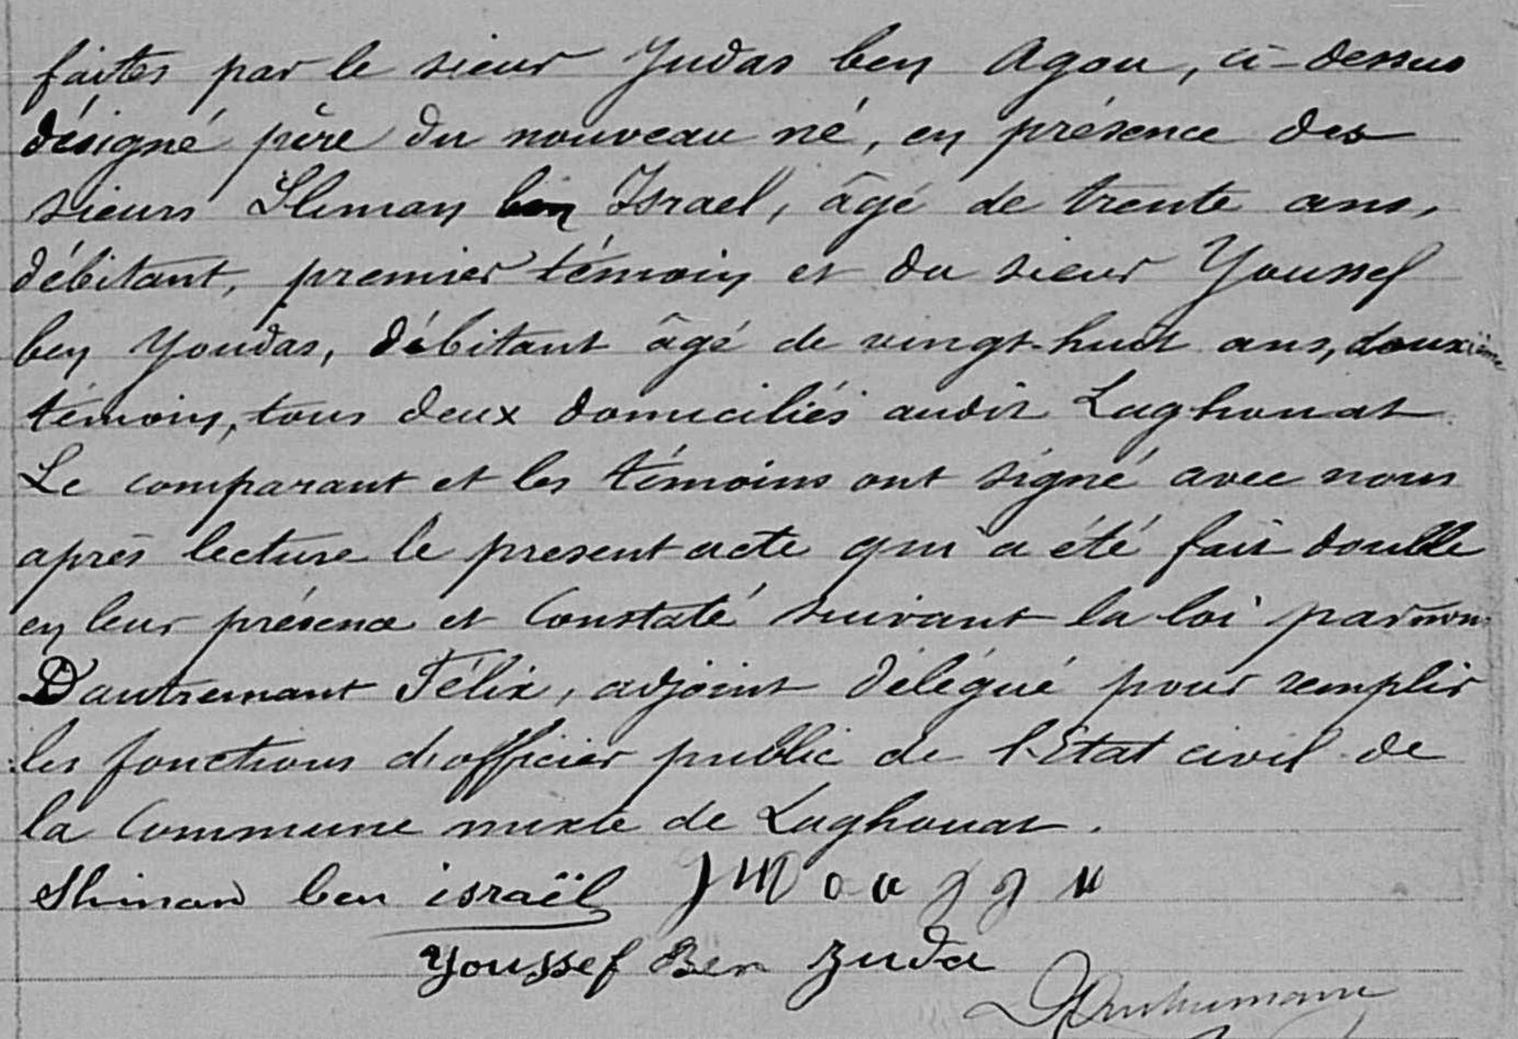 faites par le sieur Judas ben Agou, ci-dessus
désigné père du nouveau né, en présence des
sieurs Sliman ben Israel, âgé de trente ans,
débitant, premier témoin et du sieur Youssef
ben Youdas, débitant âgé de vingt-huit ans, deuxième
témoin, tous deux domiciliés audit Laghouat
Le comparant et les témoins ont signé avec nous
après lecture le present acte qui a été fait double
en leur présence et Constaté suivant la loi par nous
Dautremant Félix, adjoint délégué pour remplir
les fonctions d'officier public de l'Etat civil de
la Commune mixte de Laghouat.
Sliman ben israël
Youssef Ben Zuda